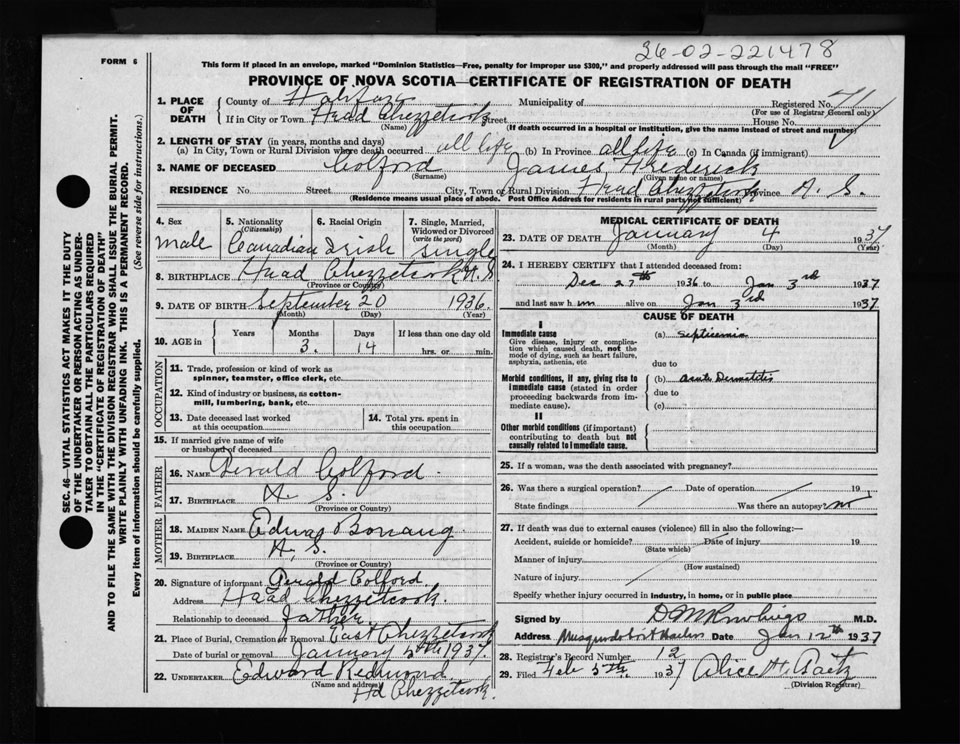 36-02-221478
FORM 6
This form if placed in an envelope, marked "Dominion Statistics—Free, penalty for improper use $300," and properly addressed will pass through the mail "FREE"
PROVINCE OF NOVA SCOTIA—CERTIFICATE OF REGISTRATION OF DEATH
SEC. 46—VITAL STATISTICS ACT MAKES IT THE DUTY
OF THE UNDERTAKER OR PERSON ACTING AS UNDER-
TAKER TO OBTAIN ALL THE PARTICULARS REQUIRED
IN THE "CERTIFICATE OF REGISTRATION OF DEATH"
AND TO FILE THE SAME WITH THE DIVISION REGISTRAR WHO SHALL ISSUE THE BURIAL PERMIT.
WRITE PLAINLY WITH UNFADING INK. THIS IS A PERMANENT RECORD.
Every item of information should be carefully supplied. (See reverse side for instructions.)
1. PLACE OF DEATH County of Halifax Municipality of Registered No.
(For use of Registrar General only)
If in City or Town Head Chezzetcook Street House No.
(Name) (If death occurred in a hospital or institution, give the name instead of street and number)
2. LENGTH OF STAY (in years, months and days)
(a) In City, Town or Rural Division where death occurred all life (b) In Province all life (c) In Canada (if immigrant)
3. NAME OF DECEASED Colford James Frederick
Surname (Given name or names)
RESIDENCE No. Street City, Town or Rural Division Head Chezzetcook Province N. S.
(Residence means usual place of abode. Post Office Address for residents in rural parts not sufficient)
4. Sex 5. Nationality (Citizenship) 6. Racial Origin 7. Single, Married, Widowed or Divorced (write the word)
male Canadian Irish Single
8. BIRTHPLACE Head Chezzetcook N. S
(Province or County)
9. DATE OF BIRTH September 20 1936.
(Month) (Day) (Year)
10. AGE in Years Months Days If less than one day old
3. 14 hrs. or min.
OCCUPATION
11. Trade, profession or kind of work as
spinner, teamster, office clerk, etc.
12. Kind of industry or business, as cotton-
mill, lumbering, bank, etc.
13. Date deceased last worked
at this occupation
14. Total yrs. spent in
this occupation
15. If married give name of wife
or husband of deceased
FATHER
16. NAME Gerald Colford.
17. BIRTHPLACE N. S.
(Province or Country)
MOTHER
18. MAIDEN NAME Edna Bonang.
19. BIRTHPLACE N. S.
(Province or Country)
20. Signature of informant Gerald Colford.
Address Head Chezzetcook.
Relationship to deceased Father
21. Place of Burial, Cremation or Removal East Chezzetcook
Date of burial or removal January 5th 1937.
22. UNDERTAKER Edward Redmond.
(Name and address) Hd Chezzetcook.
MEDICAL CERTIFICATE OF DEATH
23. DATE OF DEATH January 4 1937
(Month) (Day) (Year)
24. I HEREBY CERTIFY that I attended deceased from:
Dec 27th 1936 to Jan 3rd 1937
and last saw him alive on Jan 3rd 1937
CAUSE OF DEATH
I
Immediate cause (a) Septicemia
Give disease, injury or complica-
tion which caused death, not the
mode of dying, such as heart failure,
asphyxia, asthenia, etc due to
Morbid conditions, if any, giving rise to (b) acute Dermatitis
immediate cause (stated in order due to
proceeding backwards from im-
mediate cause). (c)
II
Other morbid conditions (if important)
contributing to death but not
causally related to immediate cause.
25. If a woman, was the death associated with pregnancy?
26. Was there a surgical operation? Date of operation 19
State findings Was there an autopsy? no
27. If death was due to external causes (violence) fill in also the following:—
Accident, suicide or homicide? Date of injury 19
(State which)
Manner of injury
(How sustained)
Nature of injury
Specify whether injury occurred in industry, in home, or in public place
Signed by D M Rawlings M.D.
Address Musquodoboit Harbor Date Jan 12th 1937
28. Registrar's Record Number 12
29. Filed Feb 5th 1937 Alice H. Gaetz
(Division Registrar)